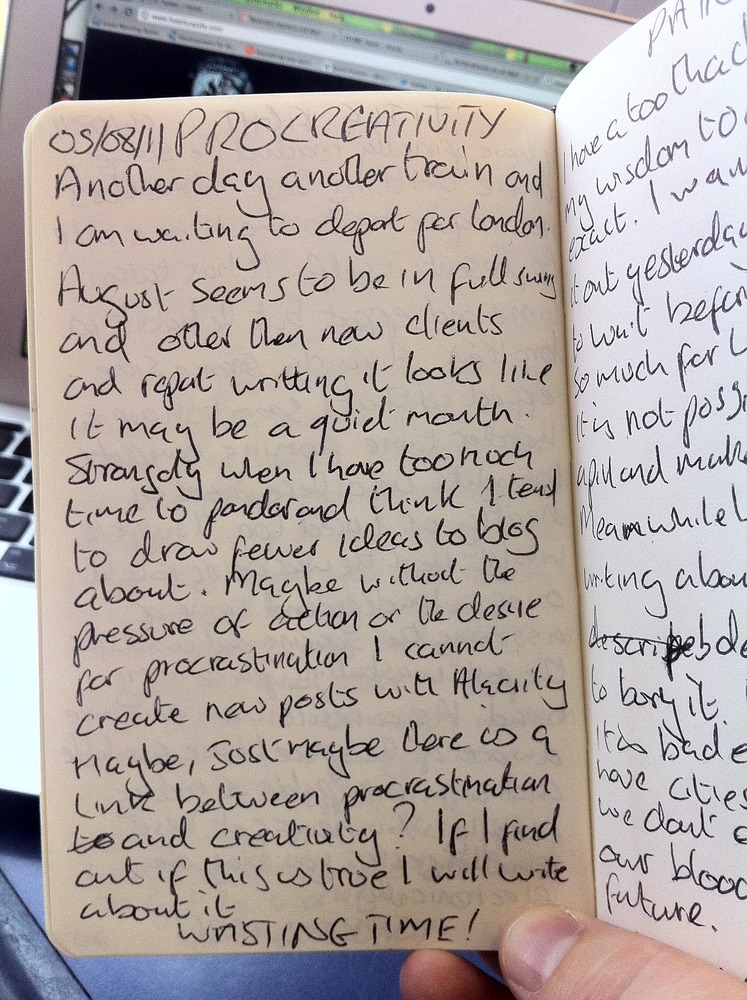 05/08/11 PROCREATIVITY
Another day another train and
I am waiting to depart for London.
August seems to be in full swing
and other then new clients
and repat writting it looks like
it may be a quiet month.
Strangely when I have too much
time to pondar and think I tend
to draw fewer ideas to blog
about. Maybe without the
pressure of action or the desire
for procrastination I cannot
create new posts with Alacrity
Maybe, Just maybe there is a
Link between procrastination
to and creativity? If I find
out if this is true I will write
about it
WASTING TIME!
PAIN
I have a toothac
my wisdom to
exact. I wan
it out yesterday
to wait befor
so much for L
It is not poss
a pill and mak
Meanwhile I
writing abou
describeb de
to bory it.
It is bad e
have cities
we dont e
our blood
future.